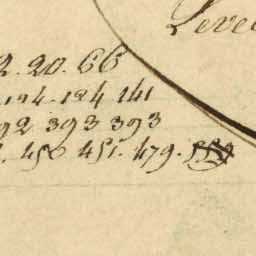 2. 20. 66
124. 124 141
92 393 393
450 451. 479.